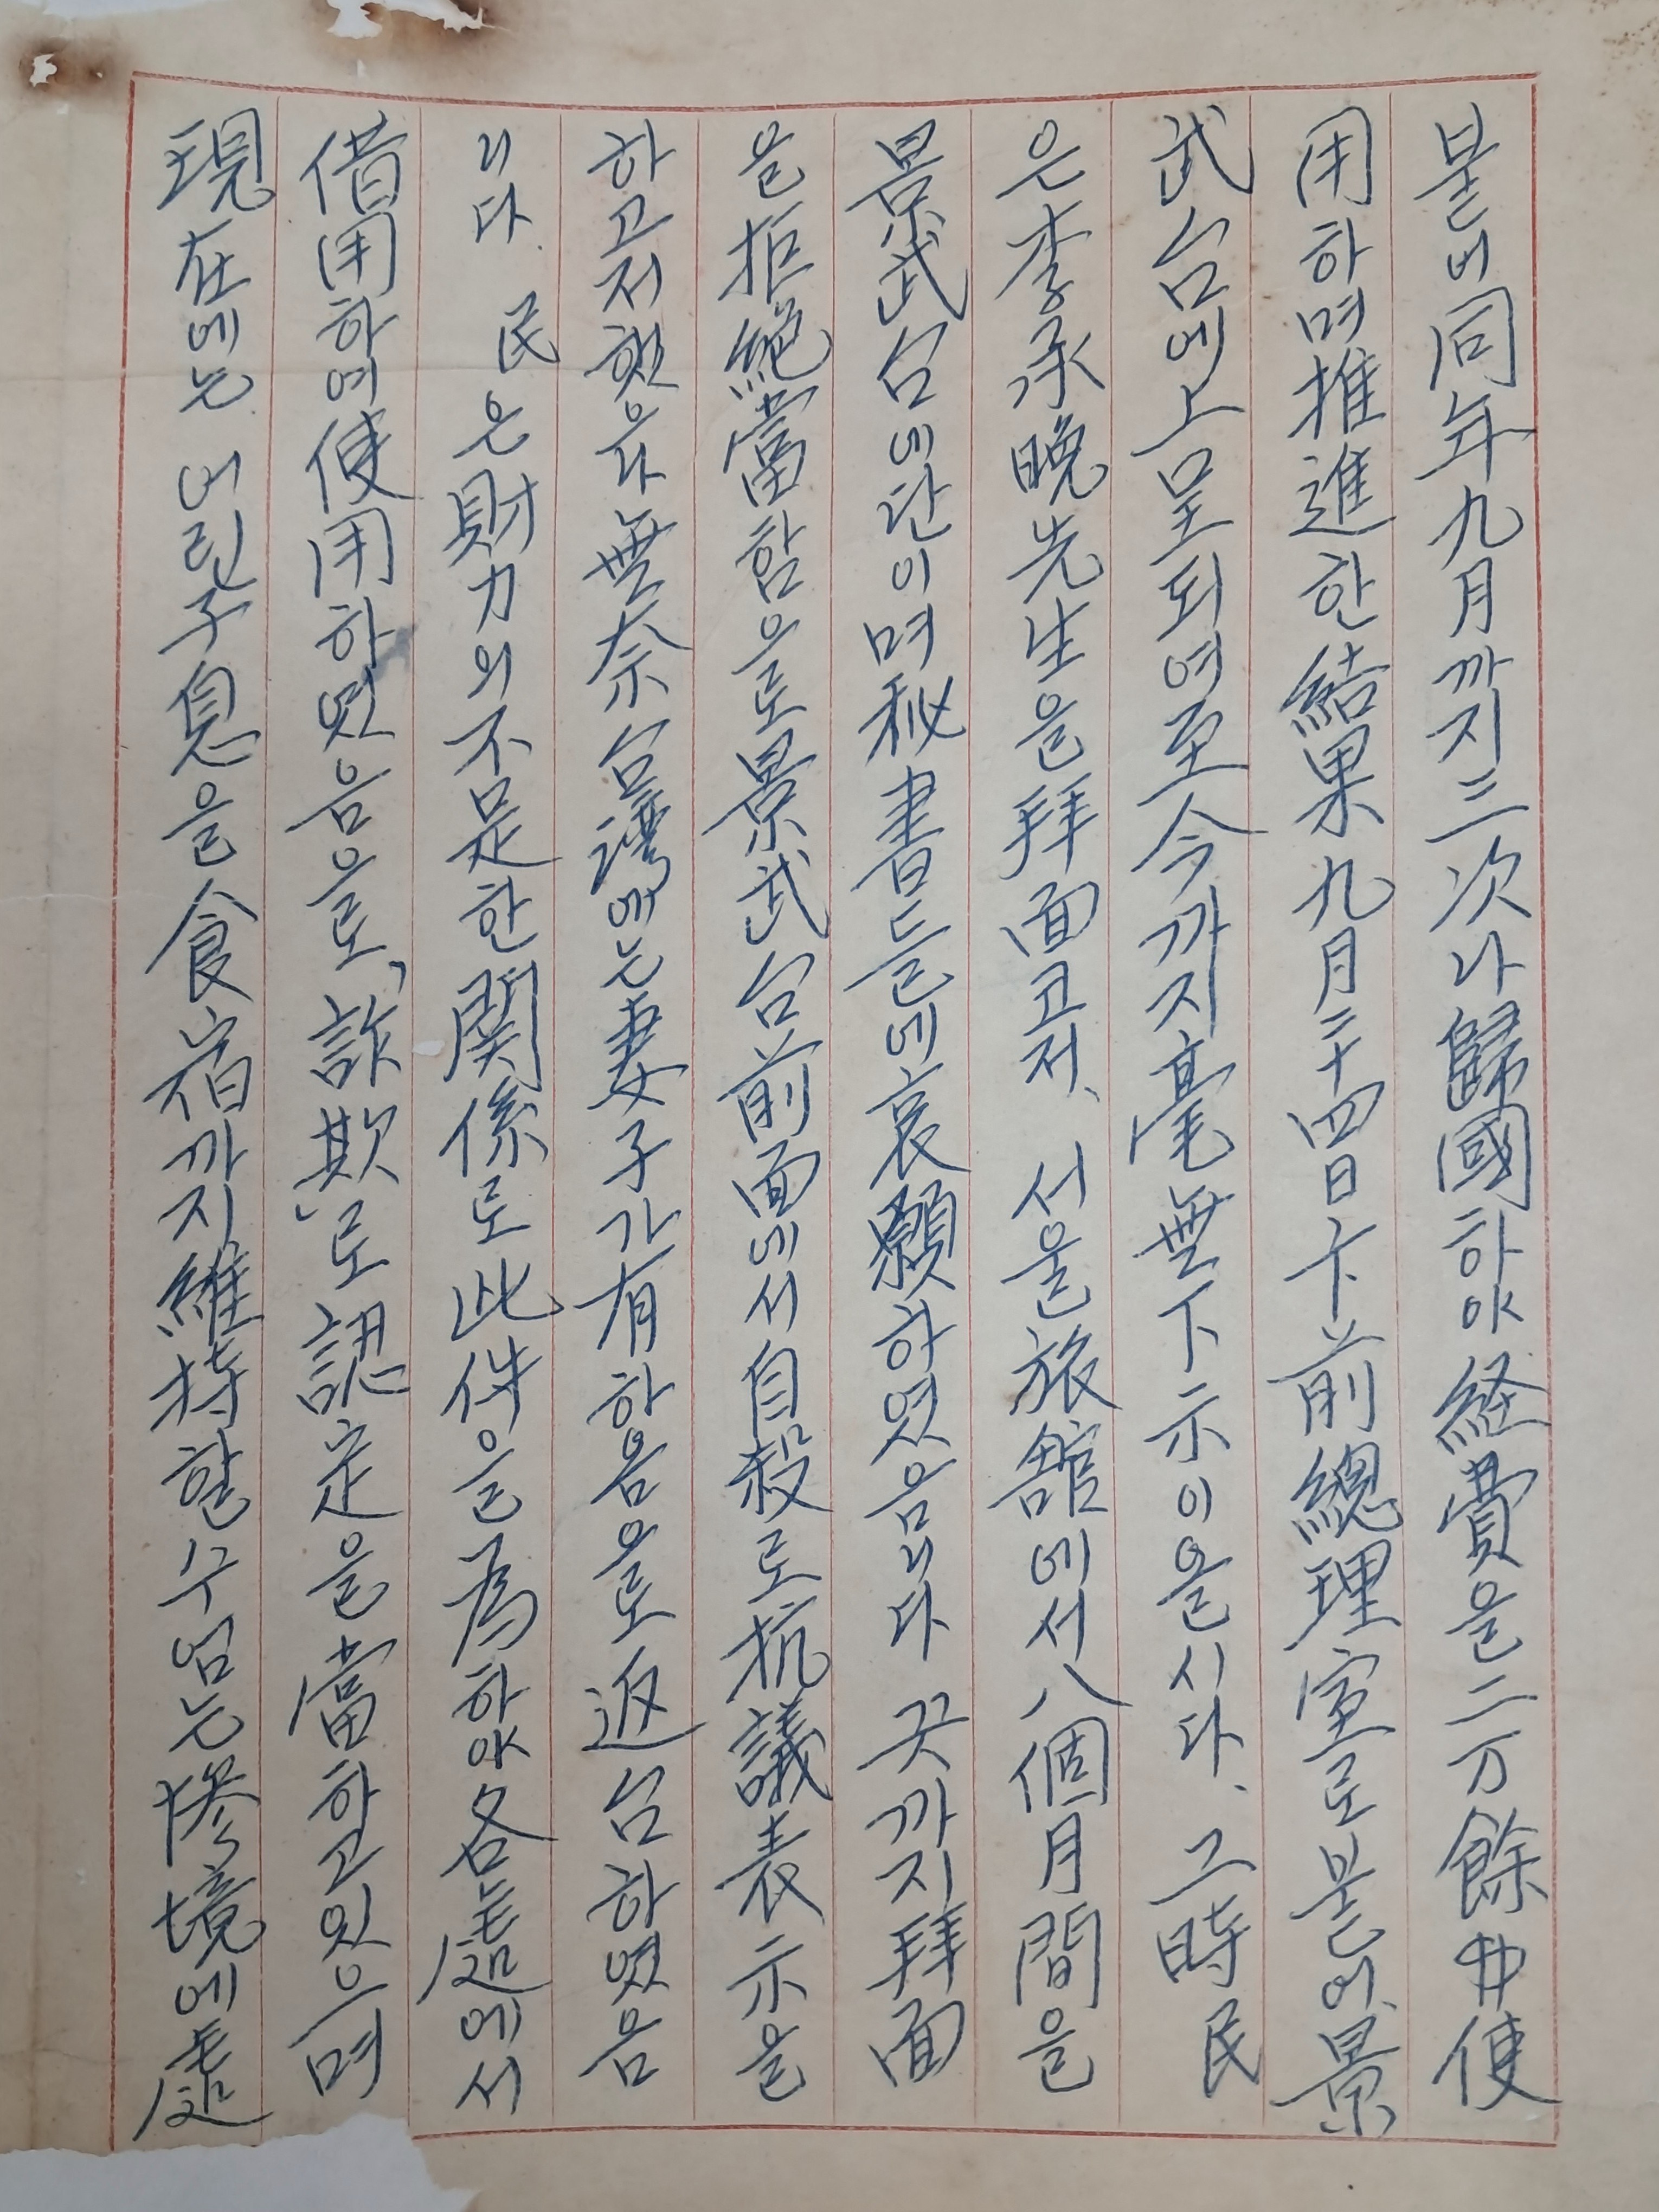 붙어同年九月까지三次나歸國하야経費을二万餘弗使
用하며推進한結果九月二十四日卞前總理室로붙어景
武台에上呈되여至今까지毫無下示이올시다、그時民
은李承晩先生을拜面코저、서울旅舘에서八個月間을
景武台에단이며秘書들에哀願하였음니다 끗까지拜面
을拒絶當함으로景武台前面에서自殺로抗議表示을
하고저했으나無奈台灣에는妻子가有하옴으로返台하였음
니다. 民은財力의不足한関係로此件을為하야各處에서
借用하여使用하였음으로、詐欺로認定을當하고있으며
現在에는 어린子息을食宿까지維持할수없는慘境에處